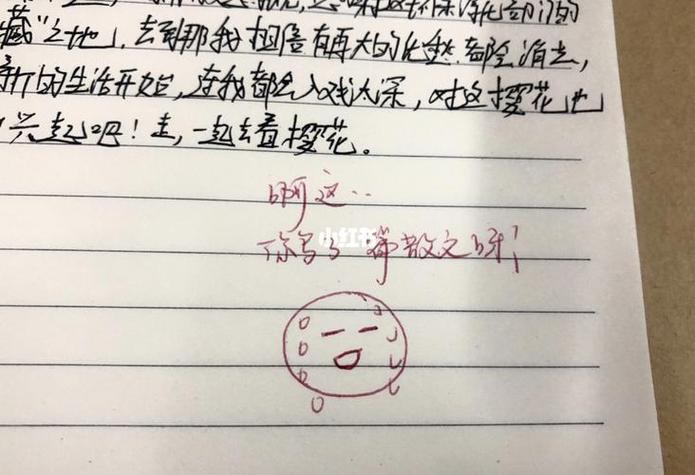 藏”之地，去到那我相信有再大的 都会消去，
的生活开始，连我都会入戏太深，对这樱花也
兴起吧！走，一起去看樱花。
啊这..
小红书
你写了篇散文呀！